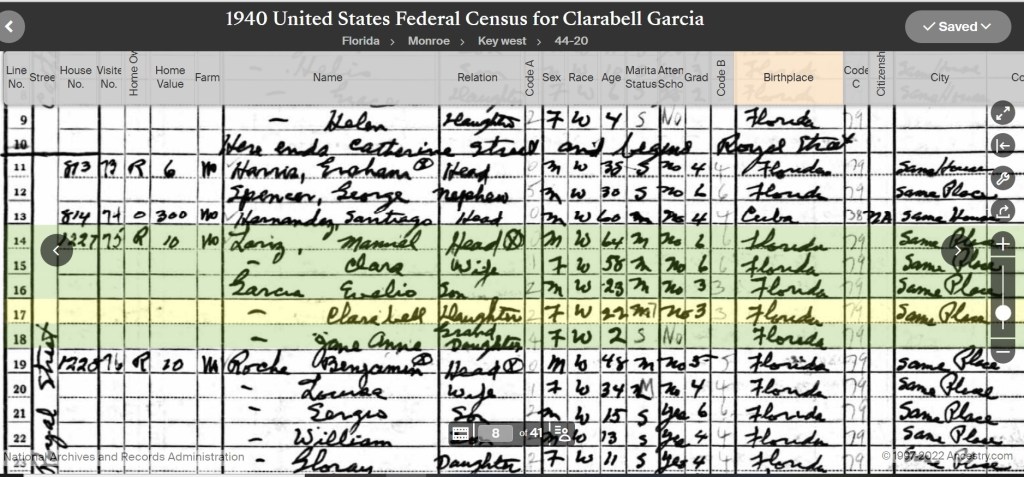 1940 United States Federal Census for Clarabell Garcia
Saved
Florida > Monroe > Key west > 44-20
Line No. Stree House No. Visite No. Home Ow Home Value Farm Name Relation Code A Sex Race Age Marita Status Atten Scho Grad Code B Birthplace Code C Citizensh City Co
9 — Helen Daughter 2 F W 4 S No Florida 79
10 Here ends Catherine Street and begins Royal Street
11 873 73 R 6 No Harris, Graham Head 0 M W 38 S No 4 4 Florida 79 Same House
12 Spencer, George nephew 5 M W 30 S No 6 6 Florida 79 Same Place
13 814 74 O 300 No Hernandez, Santiago Head 0 M W 60 M No 4 4 Cuba Same House
14 1227 75 R 10 No Manuel Head M W 64 M No 6 6 Florida 79 Same Place
15 — Clara Wife 1 F W 58 M No 6 6 Florida 79 Same Place
16 Garcia Evelio Son 2 M W 23 M No 3 3 Florida 79 Same Place
17 — Clara bell Daughter 2 F W 22 M 7 No 3 3 Florida 79 Same Place
18 — Jane Anna Grand Daughter F W 2 S No Florida 79
19 76 R 10 No Roche Benjamin Head M W 48 M No 5 5 Florida 79 Same Place
20 — Louisa Wife 1 F W 34 M No 4 4 Florida 79 Same Place
21 — Sergio Son M W 15 S Yes 6 Florida 79 Same Place
22 — William W 13 S Yes 4 4 Florida 79 Same Place
8 of 41
23 — Gloray Daughter 2 F W 11 S Yes 4 4 Florida 79 Same Place
Royal Street
National Archives and Records Administration
© 1997-2022 Ancestry.com